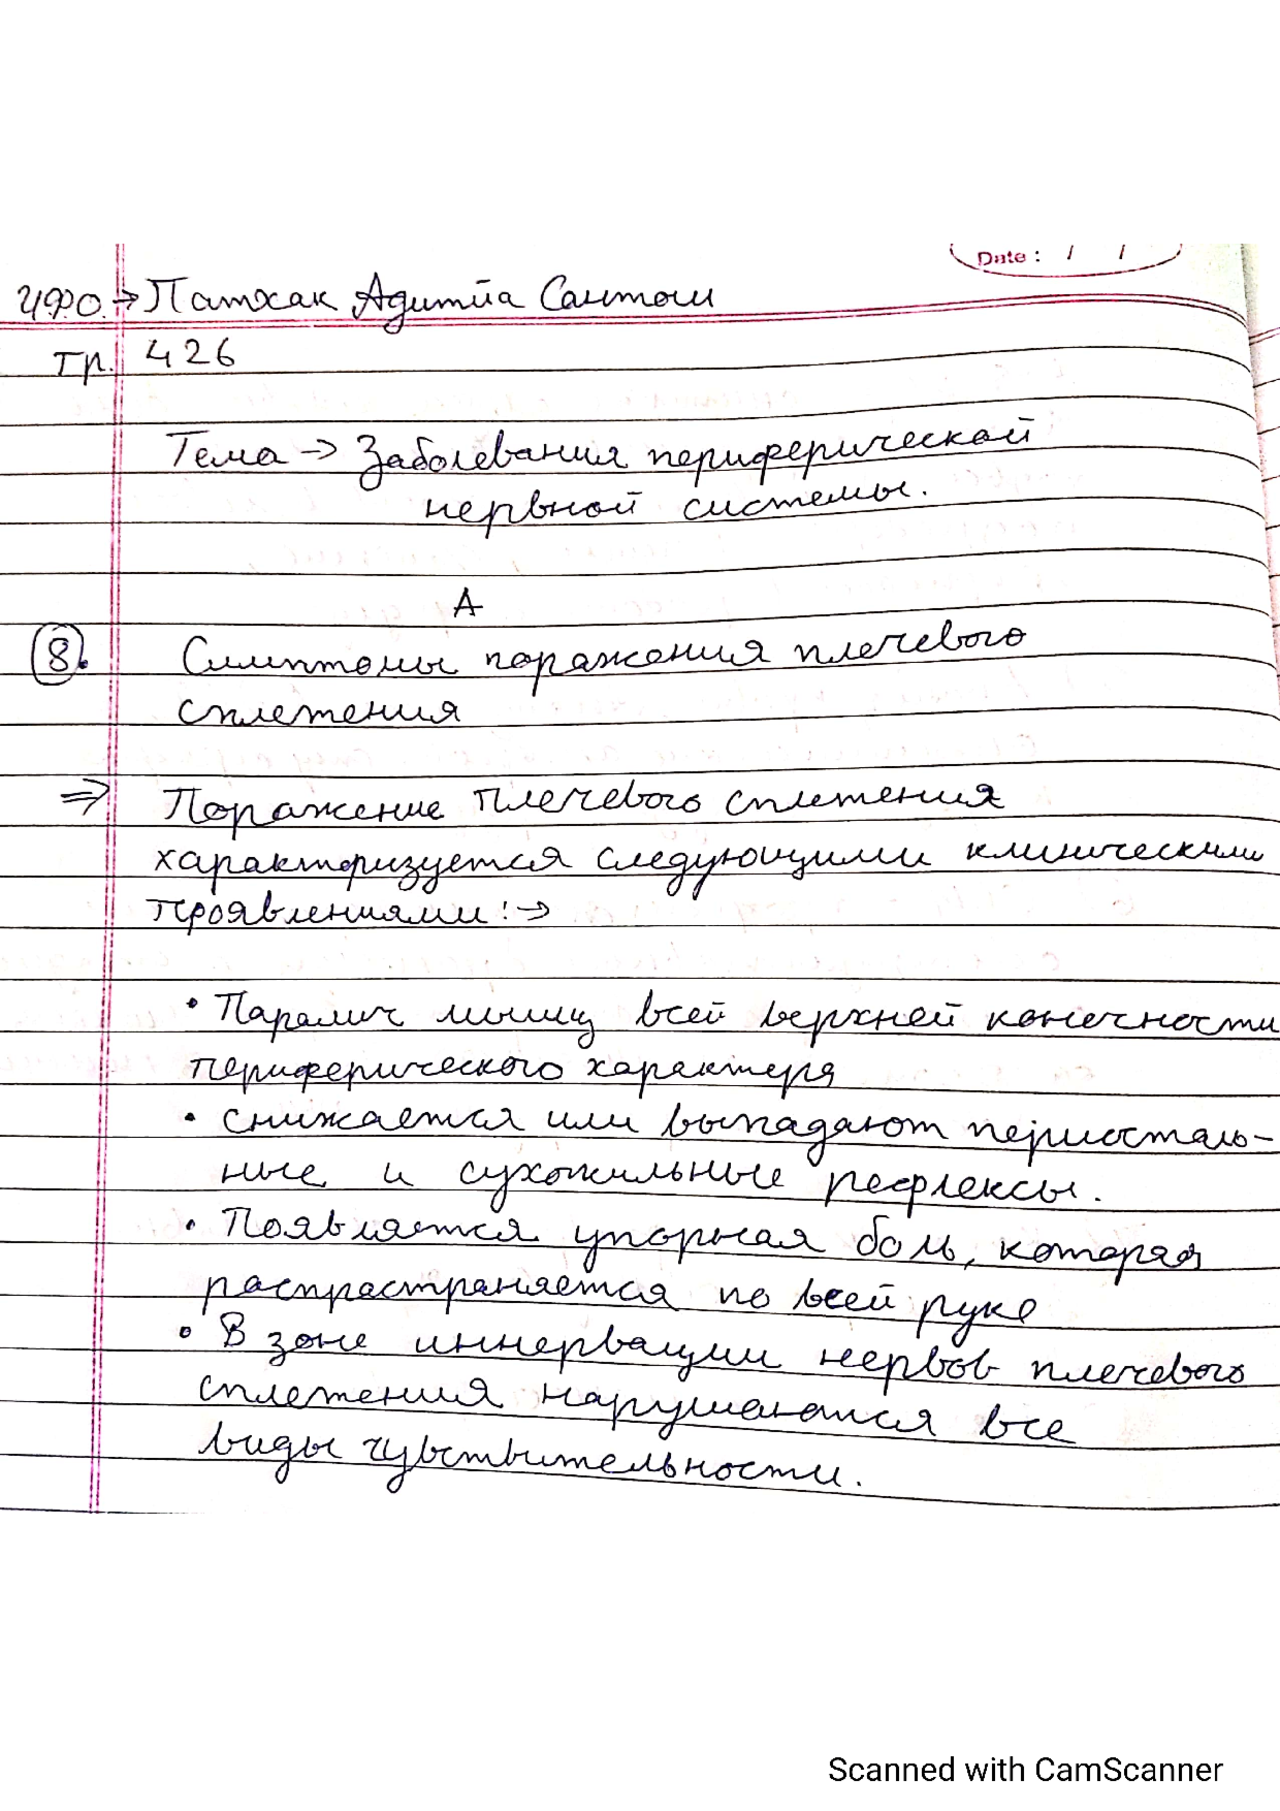 Date : / /
ИФО. → Патхак Адитйа Сантош
гр. 426
Тема → Заболевания периферической
нервной системы.
А
8. Симптомы поражения плечевого
сплетения
⇒ Поражение плечевого сплетения
характеризуется следующими клиническими
проявлениями : →
• Паралич мышц всей верхней конечности
периферического характера
• снижается или выпадают периосталь-
ные и сухожильные рефлексы.
• Появляется упорная боль, которая
распрастраняется по всей руке
• В зоне иннервации нервов плечевого
сплетения нарушаются все
виды чувствительности.
Scanned with CamScanner